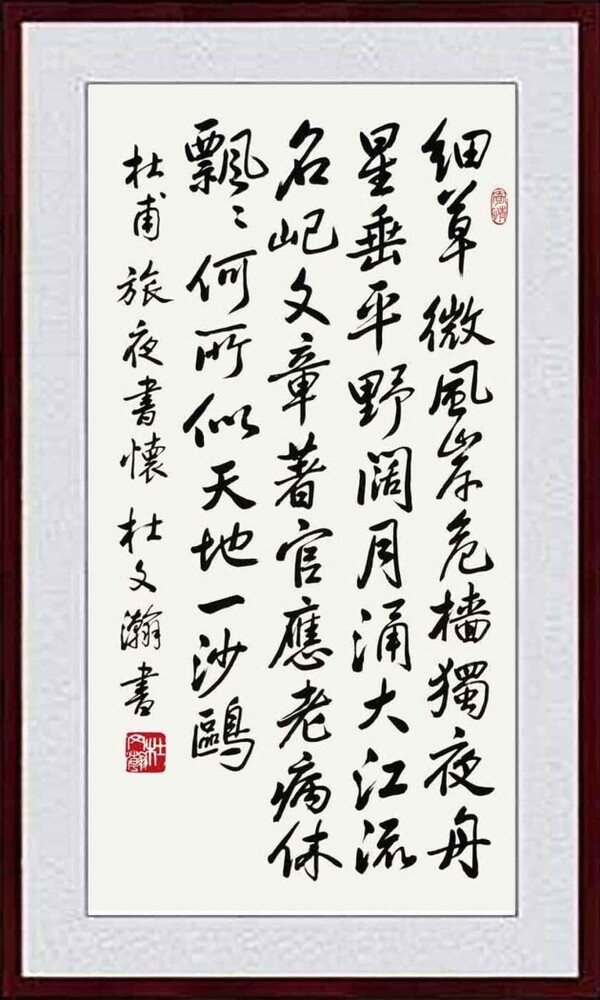 細草微風岸危檣獨夜舟
星垂平野闊月涌大江流
名屺文章著官應老病休
飄〻何所似天地一沙鷗
杜甫旅夜書懷 杜文瀚書
杜文瀚